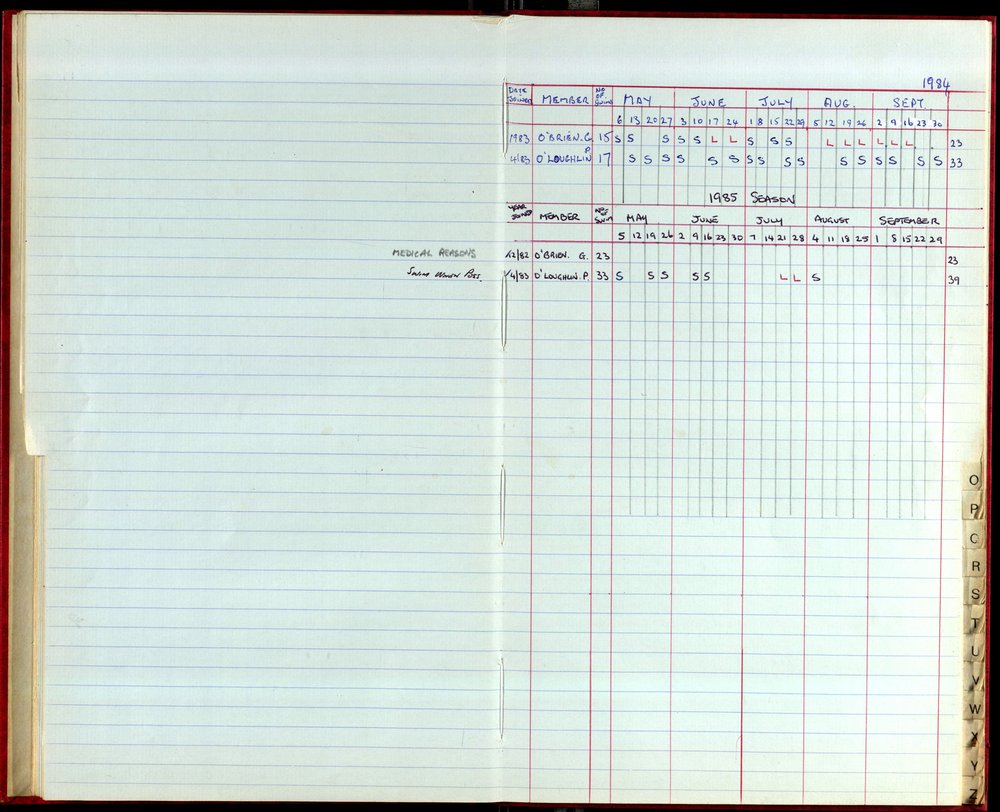 1984
DATE JOINED MEMBER NO OF SWIMS MAY JUNE JULY AUG. SEPT.
6 13 20 27 3 10 17 24 1 8 15 22 29 5 12 19 26 2 9 16 23 30
1983 O'BRIEN.G. 15 S S S S S L L S S S L L L L L L 23
4/83 O'LOUGHLIN P 17 S S S S S S S S S S S S S S S S 33
1985 SEASON
YEAR JOINED MEMBER NO. OF SWIM MAY JUNE JULY AUGUST SEPTEMBER
5 12 19 26 2 9 16 23 30 7 14 21 28 4 11 18 25 1 8 15 22 29
MEDICAL REASONS 12/82 O'BRIEN. G. 23 23
4/83 O'LOUGHLIN. P. 33 S S S S S L L S 39
O
P
Q
R
S
T
U
V
W
X
Y
Z